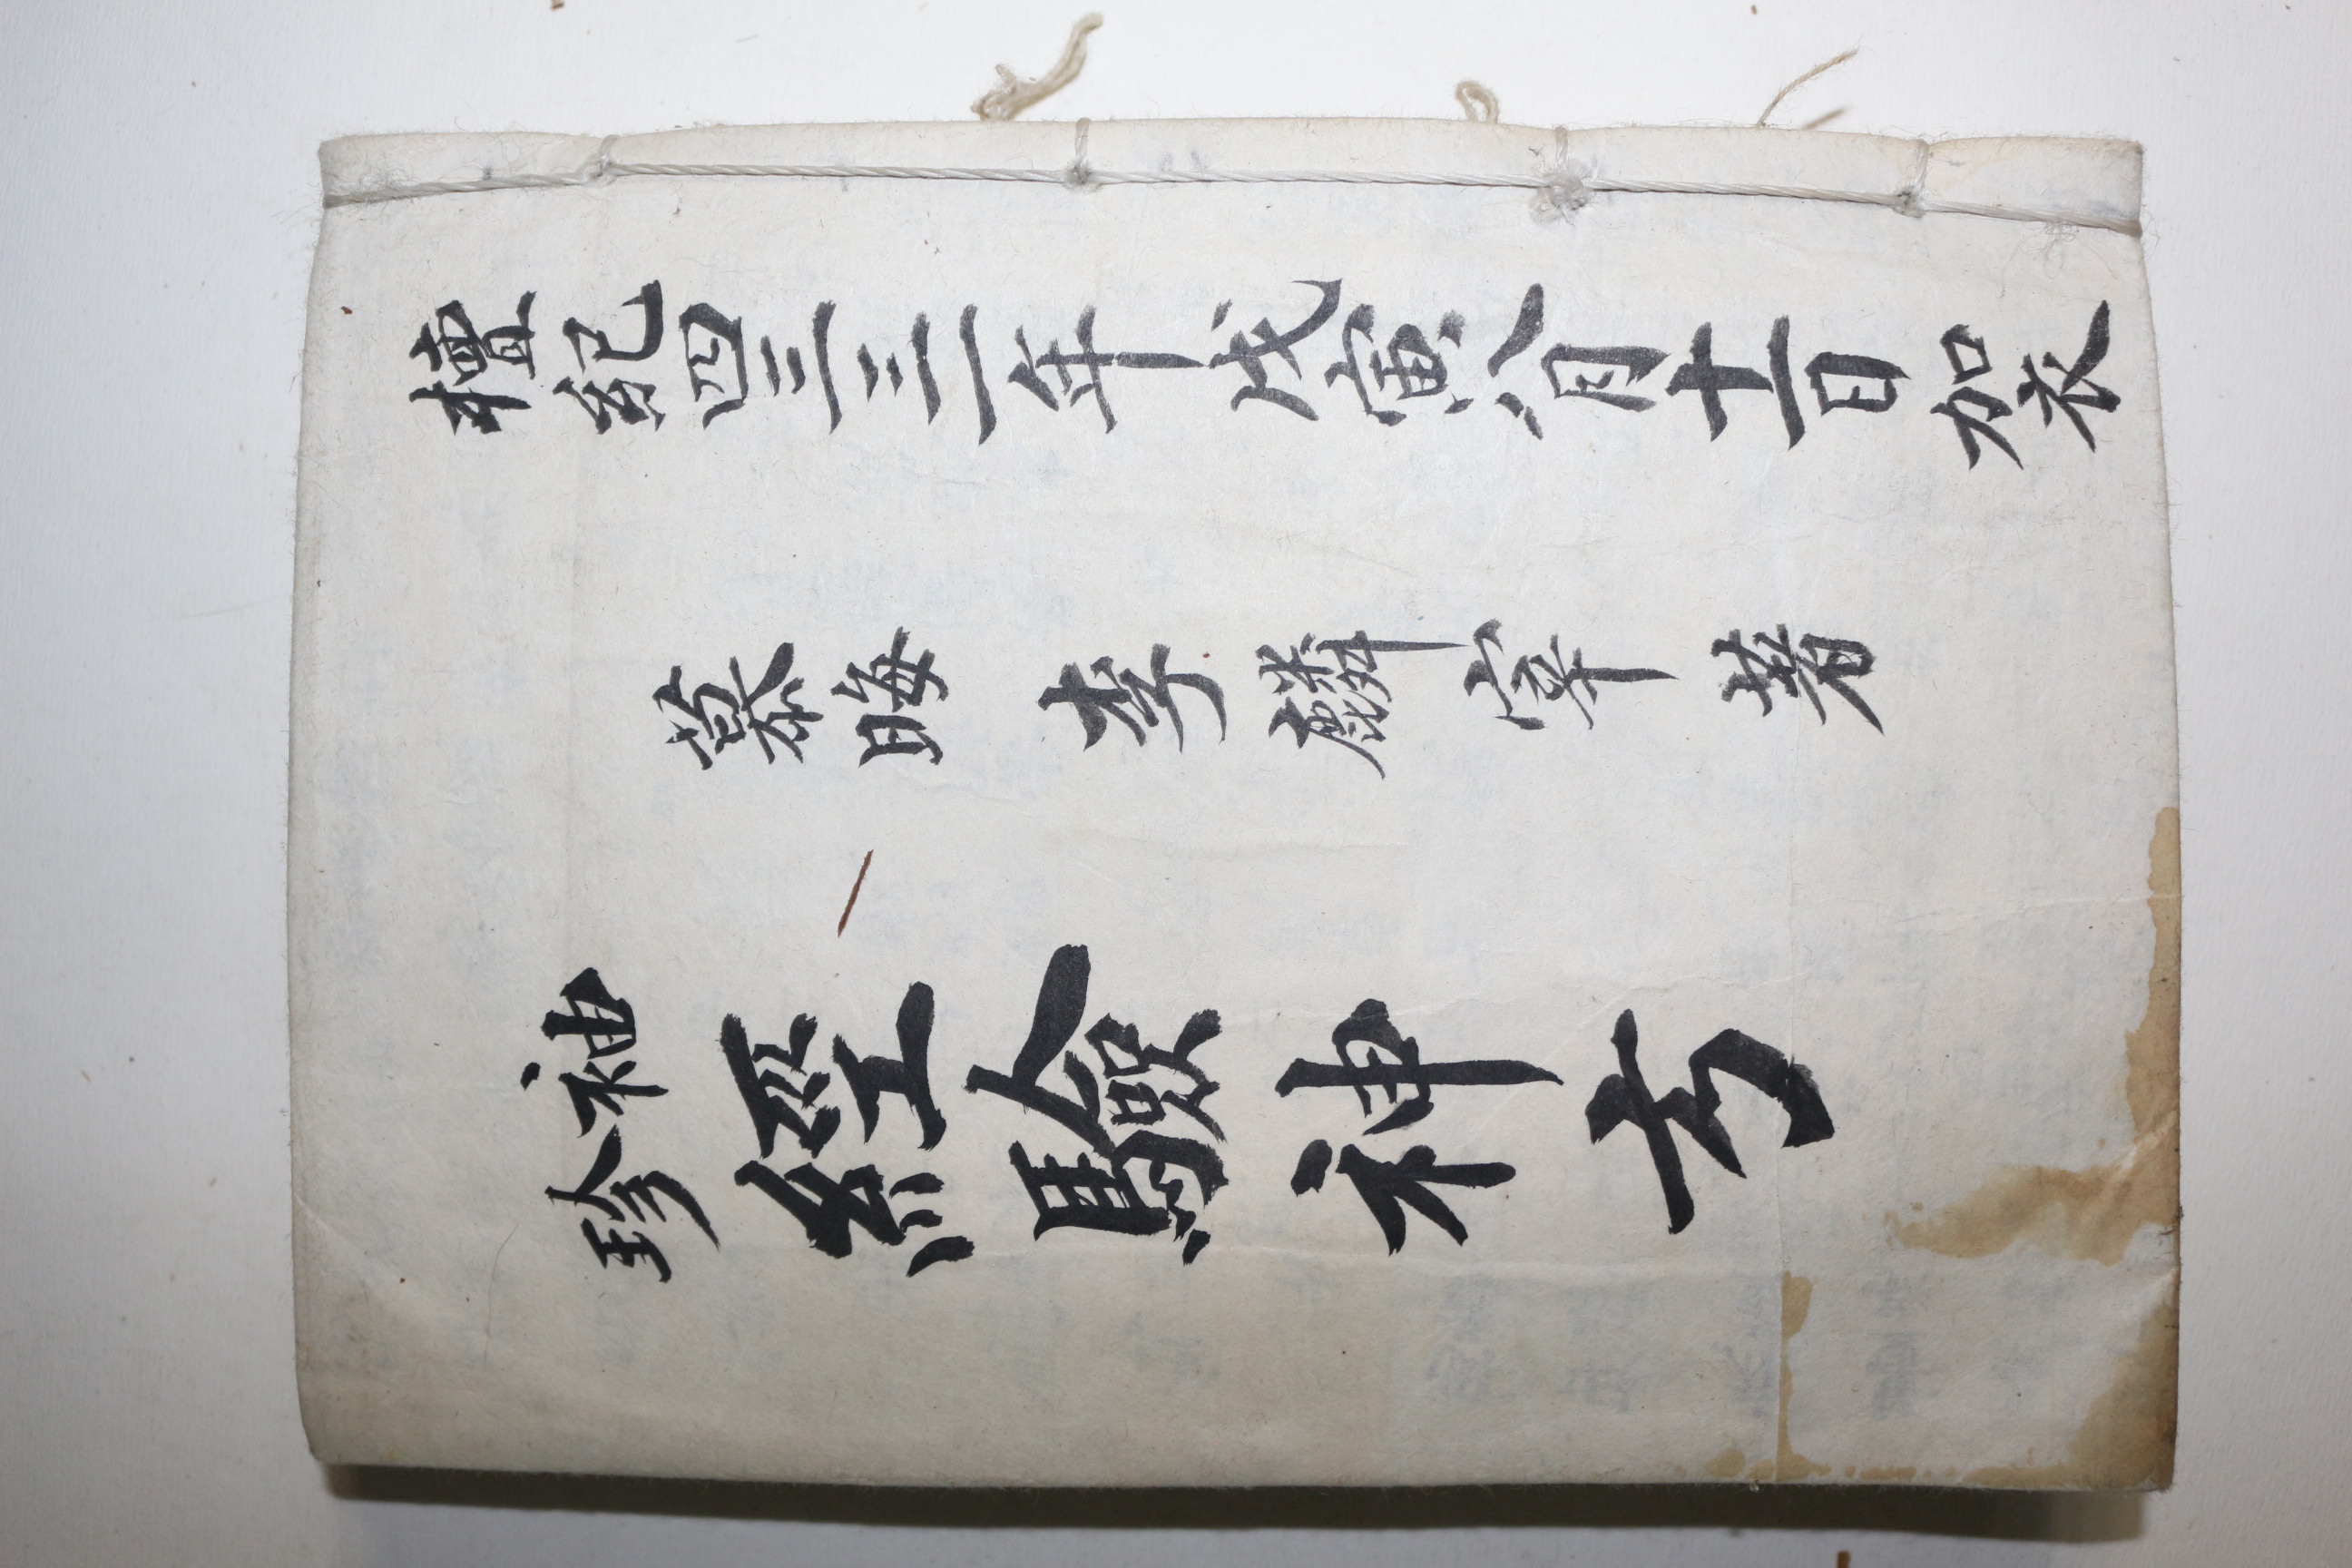 檀紀四三三一年戊寅八月十一日加衣
慕晦 李麟宰 著
袖珍經驗神方